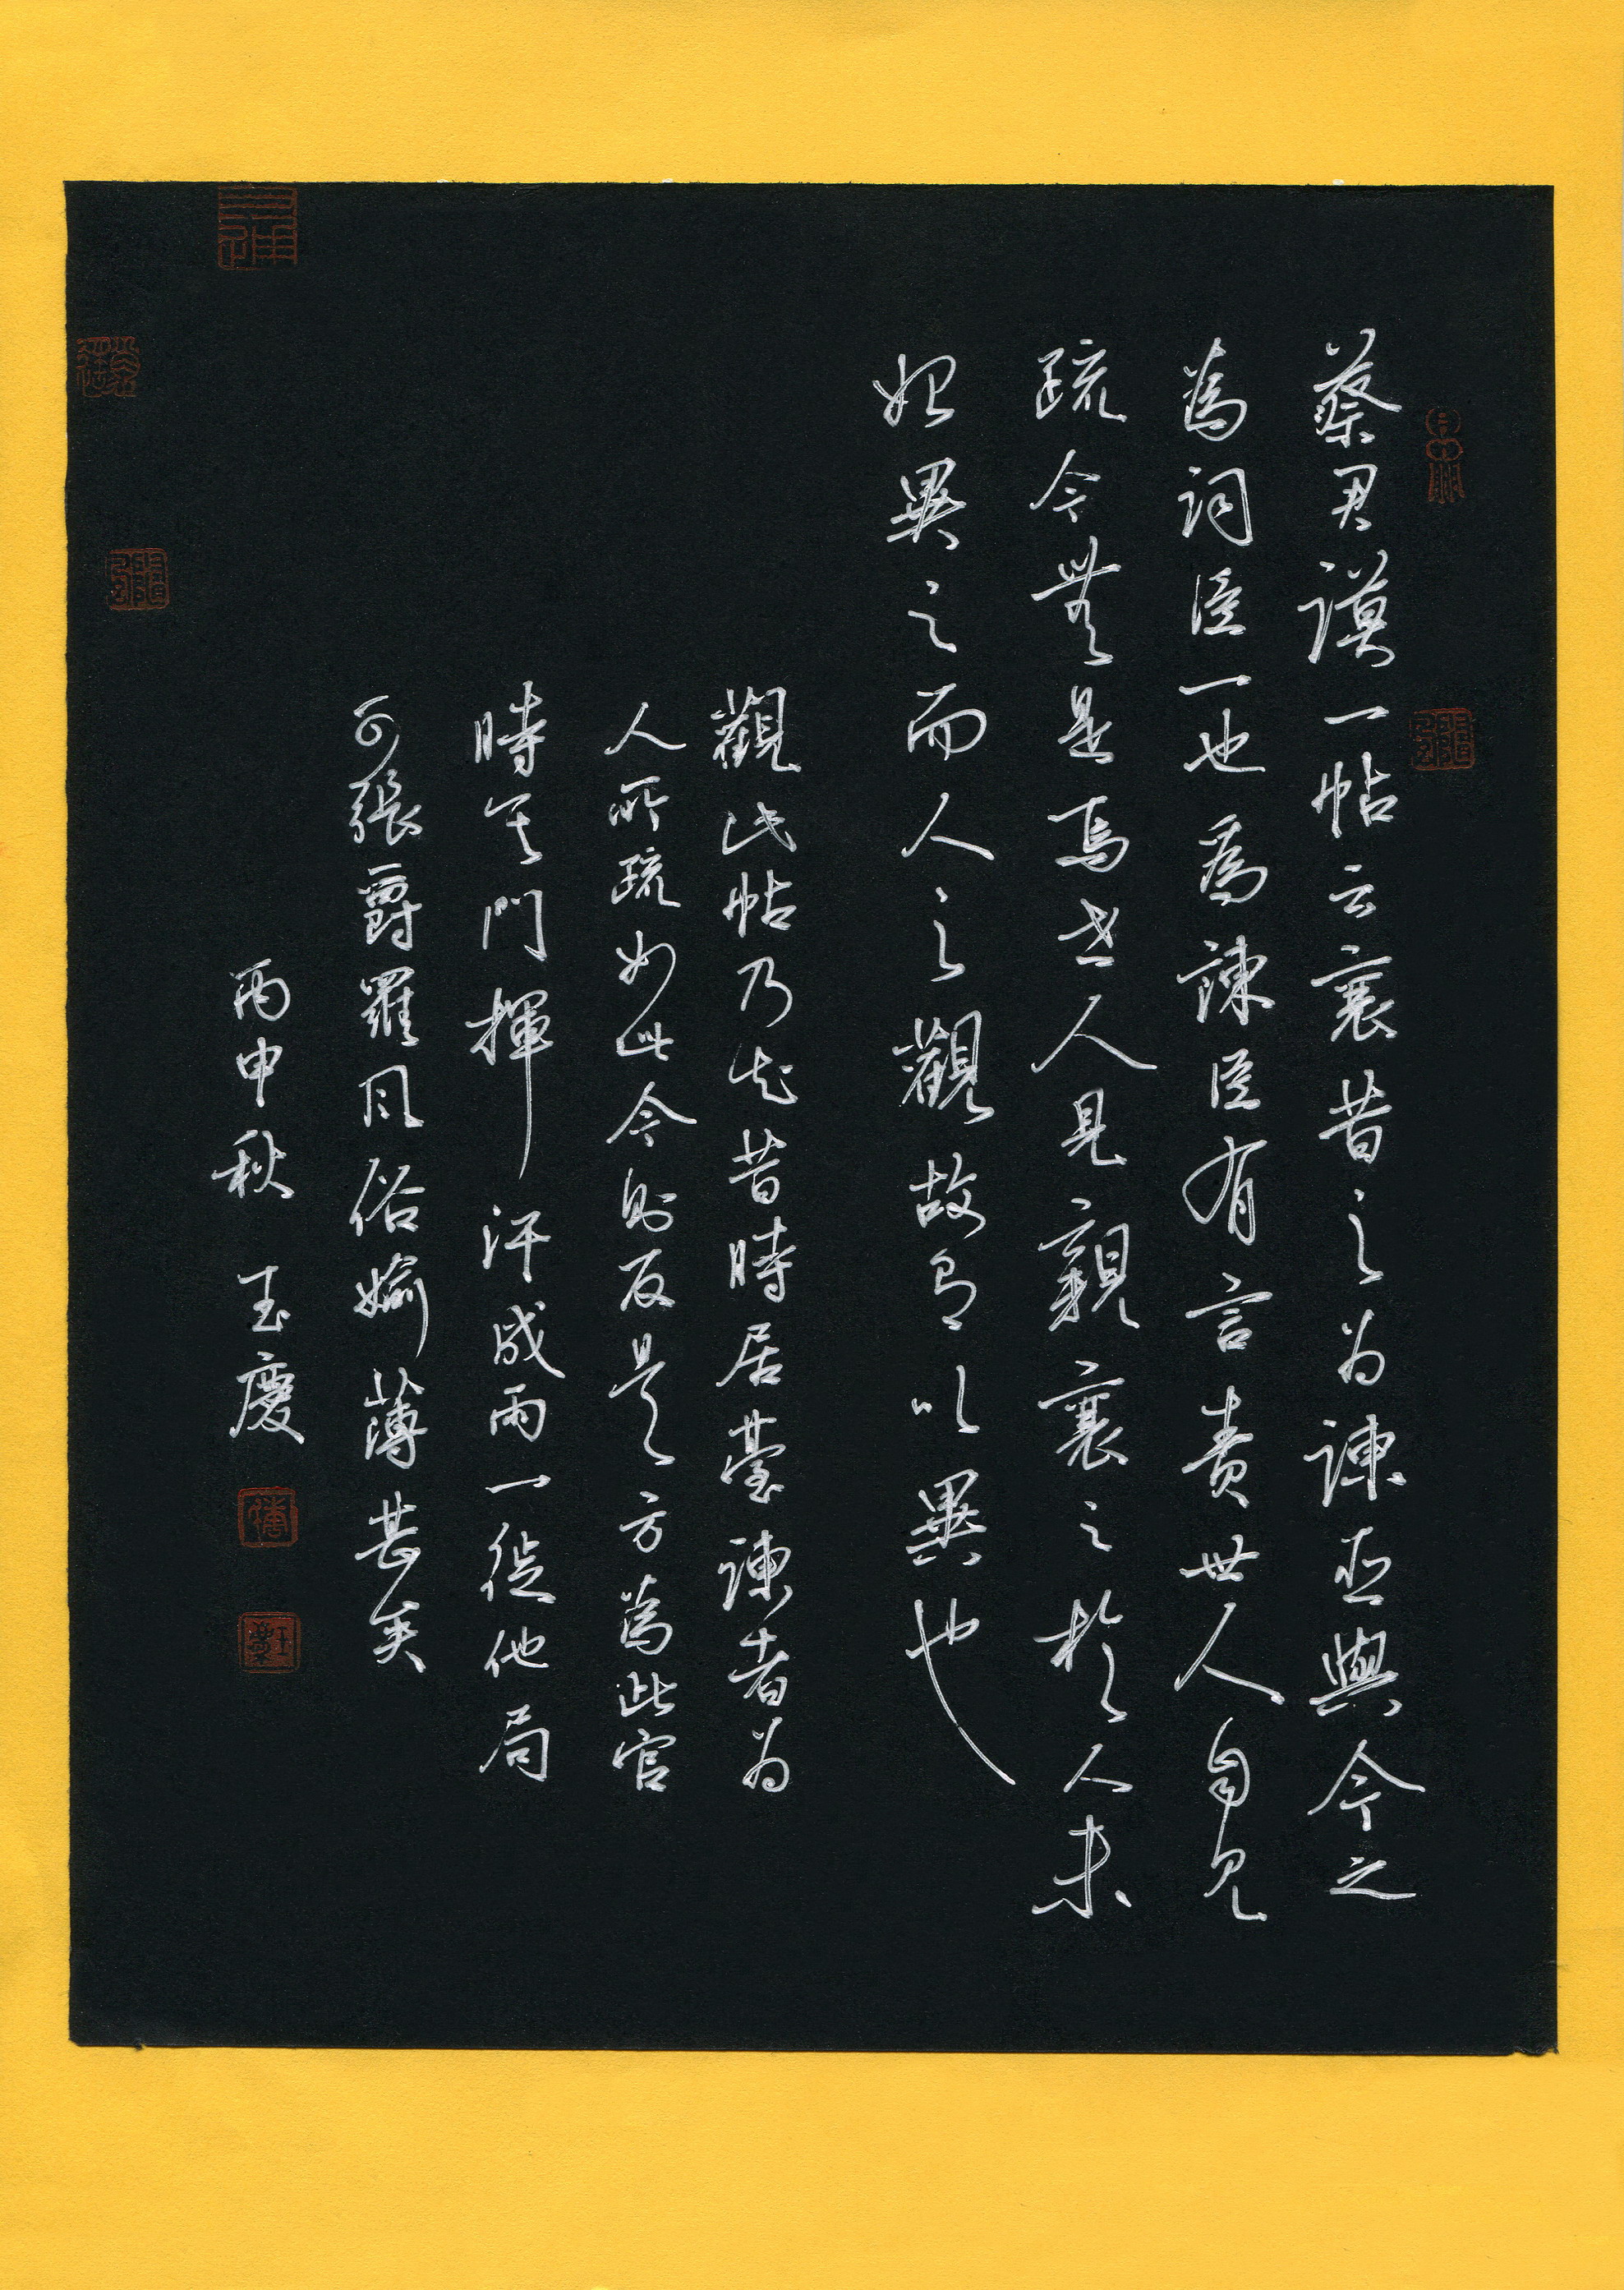 蔡君謨一帖云襄昔之為諫臣與今之
為詞臣一也為諫臣有言責世人自見
疏今無是焉世人見親襄之於人未
始異之而人之觀故有以異也
觀此帖乃知昔時居臺諫者為
人所疏如此今則反是方為此官
時其門揮汗成雨一徙他局
可張爵羅風俗媮薄甚矣
丙申秋 玉慶